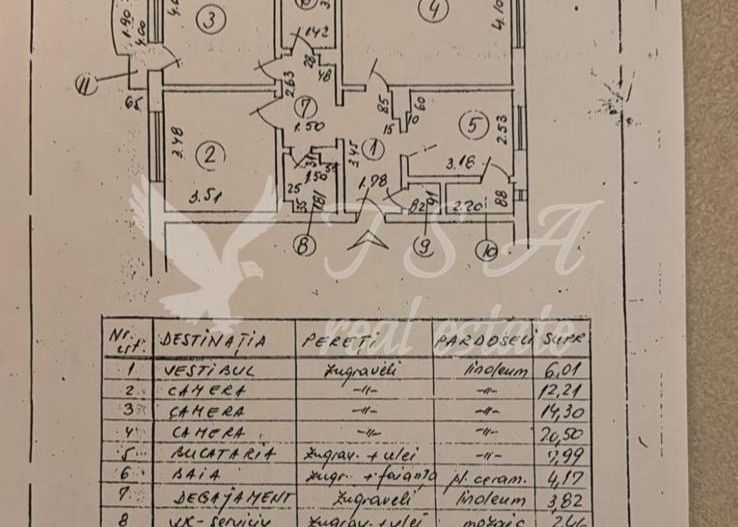 3
4
1.42
4.10
1.90
4.00
11
65
2.63
28
48
7
85
60
15
70
5
2.53
3.48
2
1.50
3.45
1
3.16
3.51
25
1.50
35
1.81
1.78
82
91
2.20
88
8
9
10
TSA
real estate
Nr. crt. DESTINAŢIA PEREŢI PARDOSELI SUPR
1 VESTIBUL zugraveli linoleum 6,01
2 CAMERA -〃- -〃- 12,21
3 CAMERA -〃- -〃- 14,30
4 CAMERA -〃- -〃- 20,50
5 BUCATARIA zugrav. + ulei -〃- 7,99
6 BAIA zugr. + faianţa pl. ceram. 4,17
7 DEGAJAMENT zugraveli linoleum 3,82
8 WC-serviciu zugrav + ulei mozaic